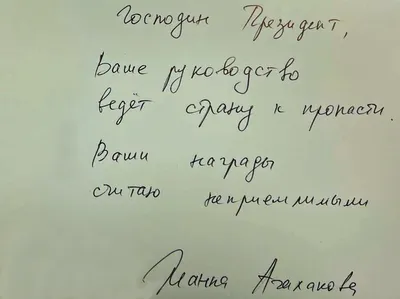 Господин Президент,
Ваше руководство
ведёт страну к пропасти.
Ваши награды
считаю неприемлимыми
Жанна Агалакова